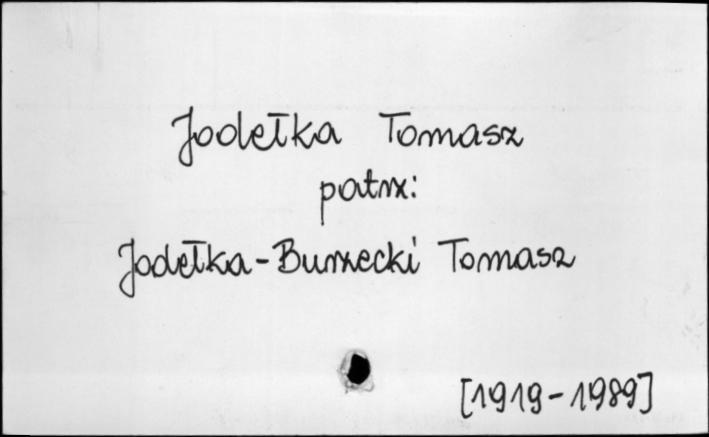 Jodełka Tomasz
patrz:
Jodełka-Burzecki Tomasz
[1919-1989]